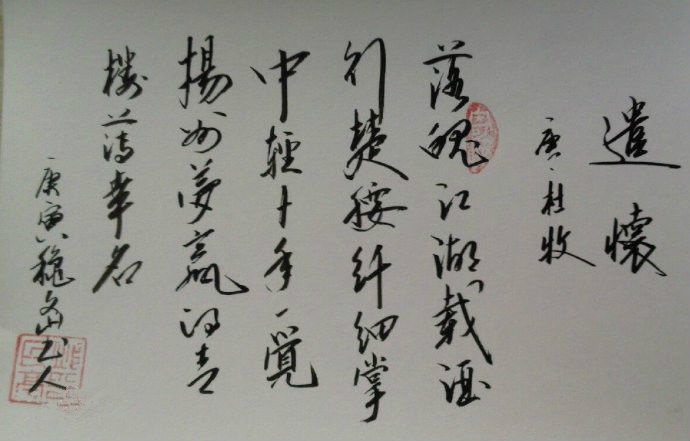 遣懷
唐·杜牧
落魄江湖載酒
行楚腰纤细掌
中輕十年一覺
揚州夢赢得青
樓薄幸名
庚寅穐山人